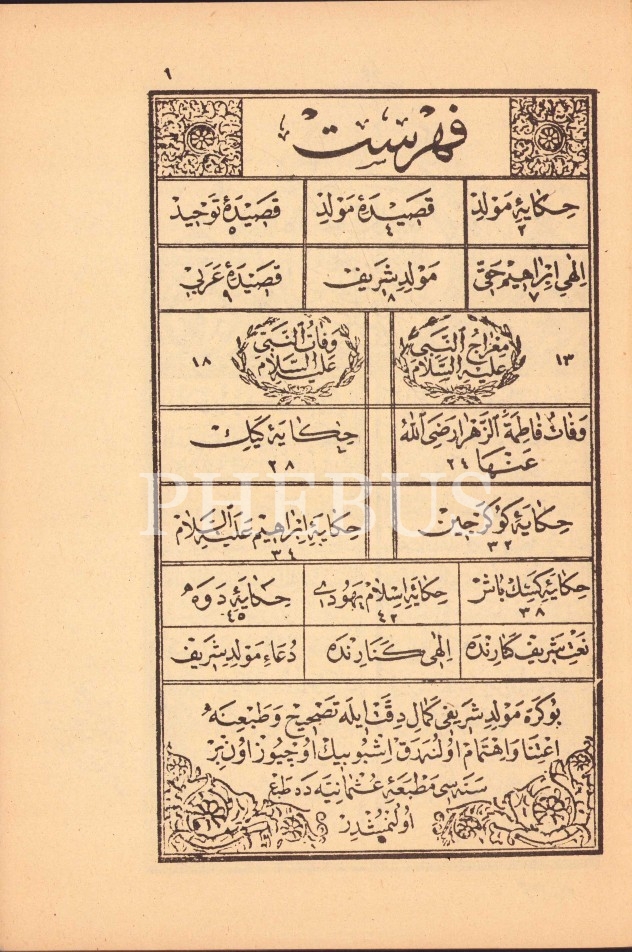 ١
فهرست
حكايۀ مولد ٢
قصيدۀ مولد ٤
قصيدۀ توحيد ٥
الهى ابراهيم حقى ٧
مولد شريف ٨
قصيدۀ عربى ٩
معراج النبى عليه السلام ١٣
وفات النبى عليه السلام ١٨
وفات فاطمة الزهرا رضى الله عنها ٢٤
حكايۀ كيك ٢٨
PHEBUS
حكايۀ كوكرجين ٣٢
حكايۀ ابراهيم عليه السلام ٣٤
حكايۀ كسك باش ٣٨
حكايۀ اسلام يهودى ٤٢
حكايۀ دوه ٤٥
نعت شريف كنارنده
الهى كنارنده
دعاء مولد شريف
بو كره مولد شريفى كمال دقت ايله تصحيح و طبعنه
اعتنا و اهتمام اولنه رق اشبو بيك اوچيوز اون بر
سنه سى مطبعۀ عثمانيه ده طبع
اولنمشدر